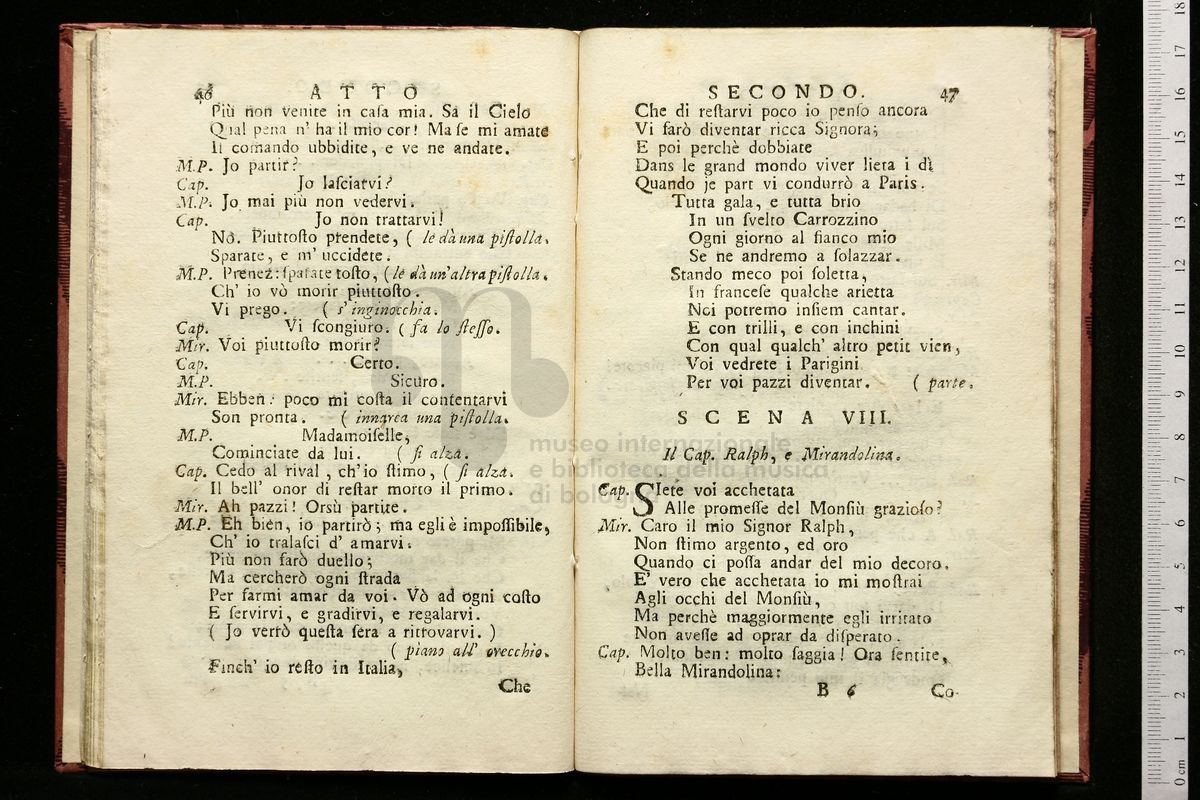 46 ATTO
Più non venite in casa mia. Sa il Cielo
Qual pena n' ha il mio cor! Ma se mi amate
Il comando ubbidite, e ve ne andate.
M.P. Jo partir?
Cap. Jo lasciarvi?
M.P. Jo mai più non vedervi.
Cap. Jo non trattarvi!
Nò. Piuttosto prendete, ( le dà una pistolla.
Sparate, e m' uccidete.
M.P. Prenez: sparate tosto, ( le dà un' altra pistolla.
Ch' io vò morir piuttosto.
Vi prego. ( s' inginocchia.
Cap. Vi scongiuro. ( fa lo stesso.
Mir. Voi piuttosto morir?
Cap. Certo.
M.P. Sicuro.
Mir. Ebben: poco mi costa il contentarvi
Son pronta. ( innarca una pistolla.
M.P. Madamoiselle,
Cominciate da lui. ( si alza.
Cap. Cedo al rival, ch'io stimo, ( si alza.
Il bell' onor di restar morto il primo.
Mir. Ah pazzi! Orsù partite.
M.P. Eh bien, io partirò; ma egli è impossibile,
Ch' io tralasci d' amarvi.
Più non farò duello;
Ma cercherò ogni strada
Per farmi amar da voi. Vò ad ogni costo
E servirvi, e gradirvi, e regalarvi.
( Jo verrò questa sera a ritrovarvi. )
( piano all' orecchio.
Finch' io resto in Italia,
Che
SECONDO. 47
Che di restarvi poco io penso ancora
Vi farò diventar ricca Signora;
E poi perchè dobbiate
Dans le grand mondo viver lieta i dì
Quando je part vi condurrò a Paris.
Tutta gala, e tutta brio
In un svelto Carrozzino
Ogni giorno al fianco mio
Se ne andremo a solazzar.
Stando meco poi soletta,
In francese qualche arietta
Noi potremo insiem cantar.
E con trilli, e con inchini
Con qual qualch' altro petit vien,
Voi vedrete i Parigini
Per voi pazzi diventar. ( parte.
SCENA VIII.
Il Cap. Ralph, e Mirandolina.
Cap. SIete voi acchetata
Alle promesse del Monsiù grazioso?
Mir. Caro il mio Signor Ralph,
Non stimo argento, ed oro
Quando ci possa andar del mio decoro.
E' vero che acchetata io mi mostrai
Agli occhi del Monsiù,
Ma perchè maggiormente egli irritato
Non avesse ad oprar da disperato.
Cap. Molto ben: molto saggia! Ora sentite,
Bella Mirandolina:
B 6 Co-
museo internazionale
e biblioteca della musica
di bologna
0 cm 1 2 3 4 5 6 7 8 9 10 11 12 13 14 15 16 17 18